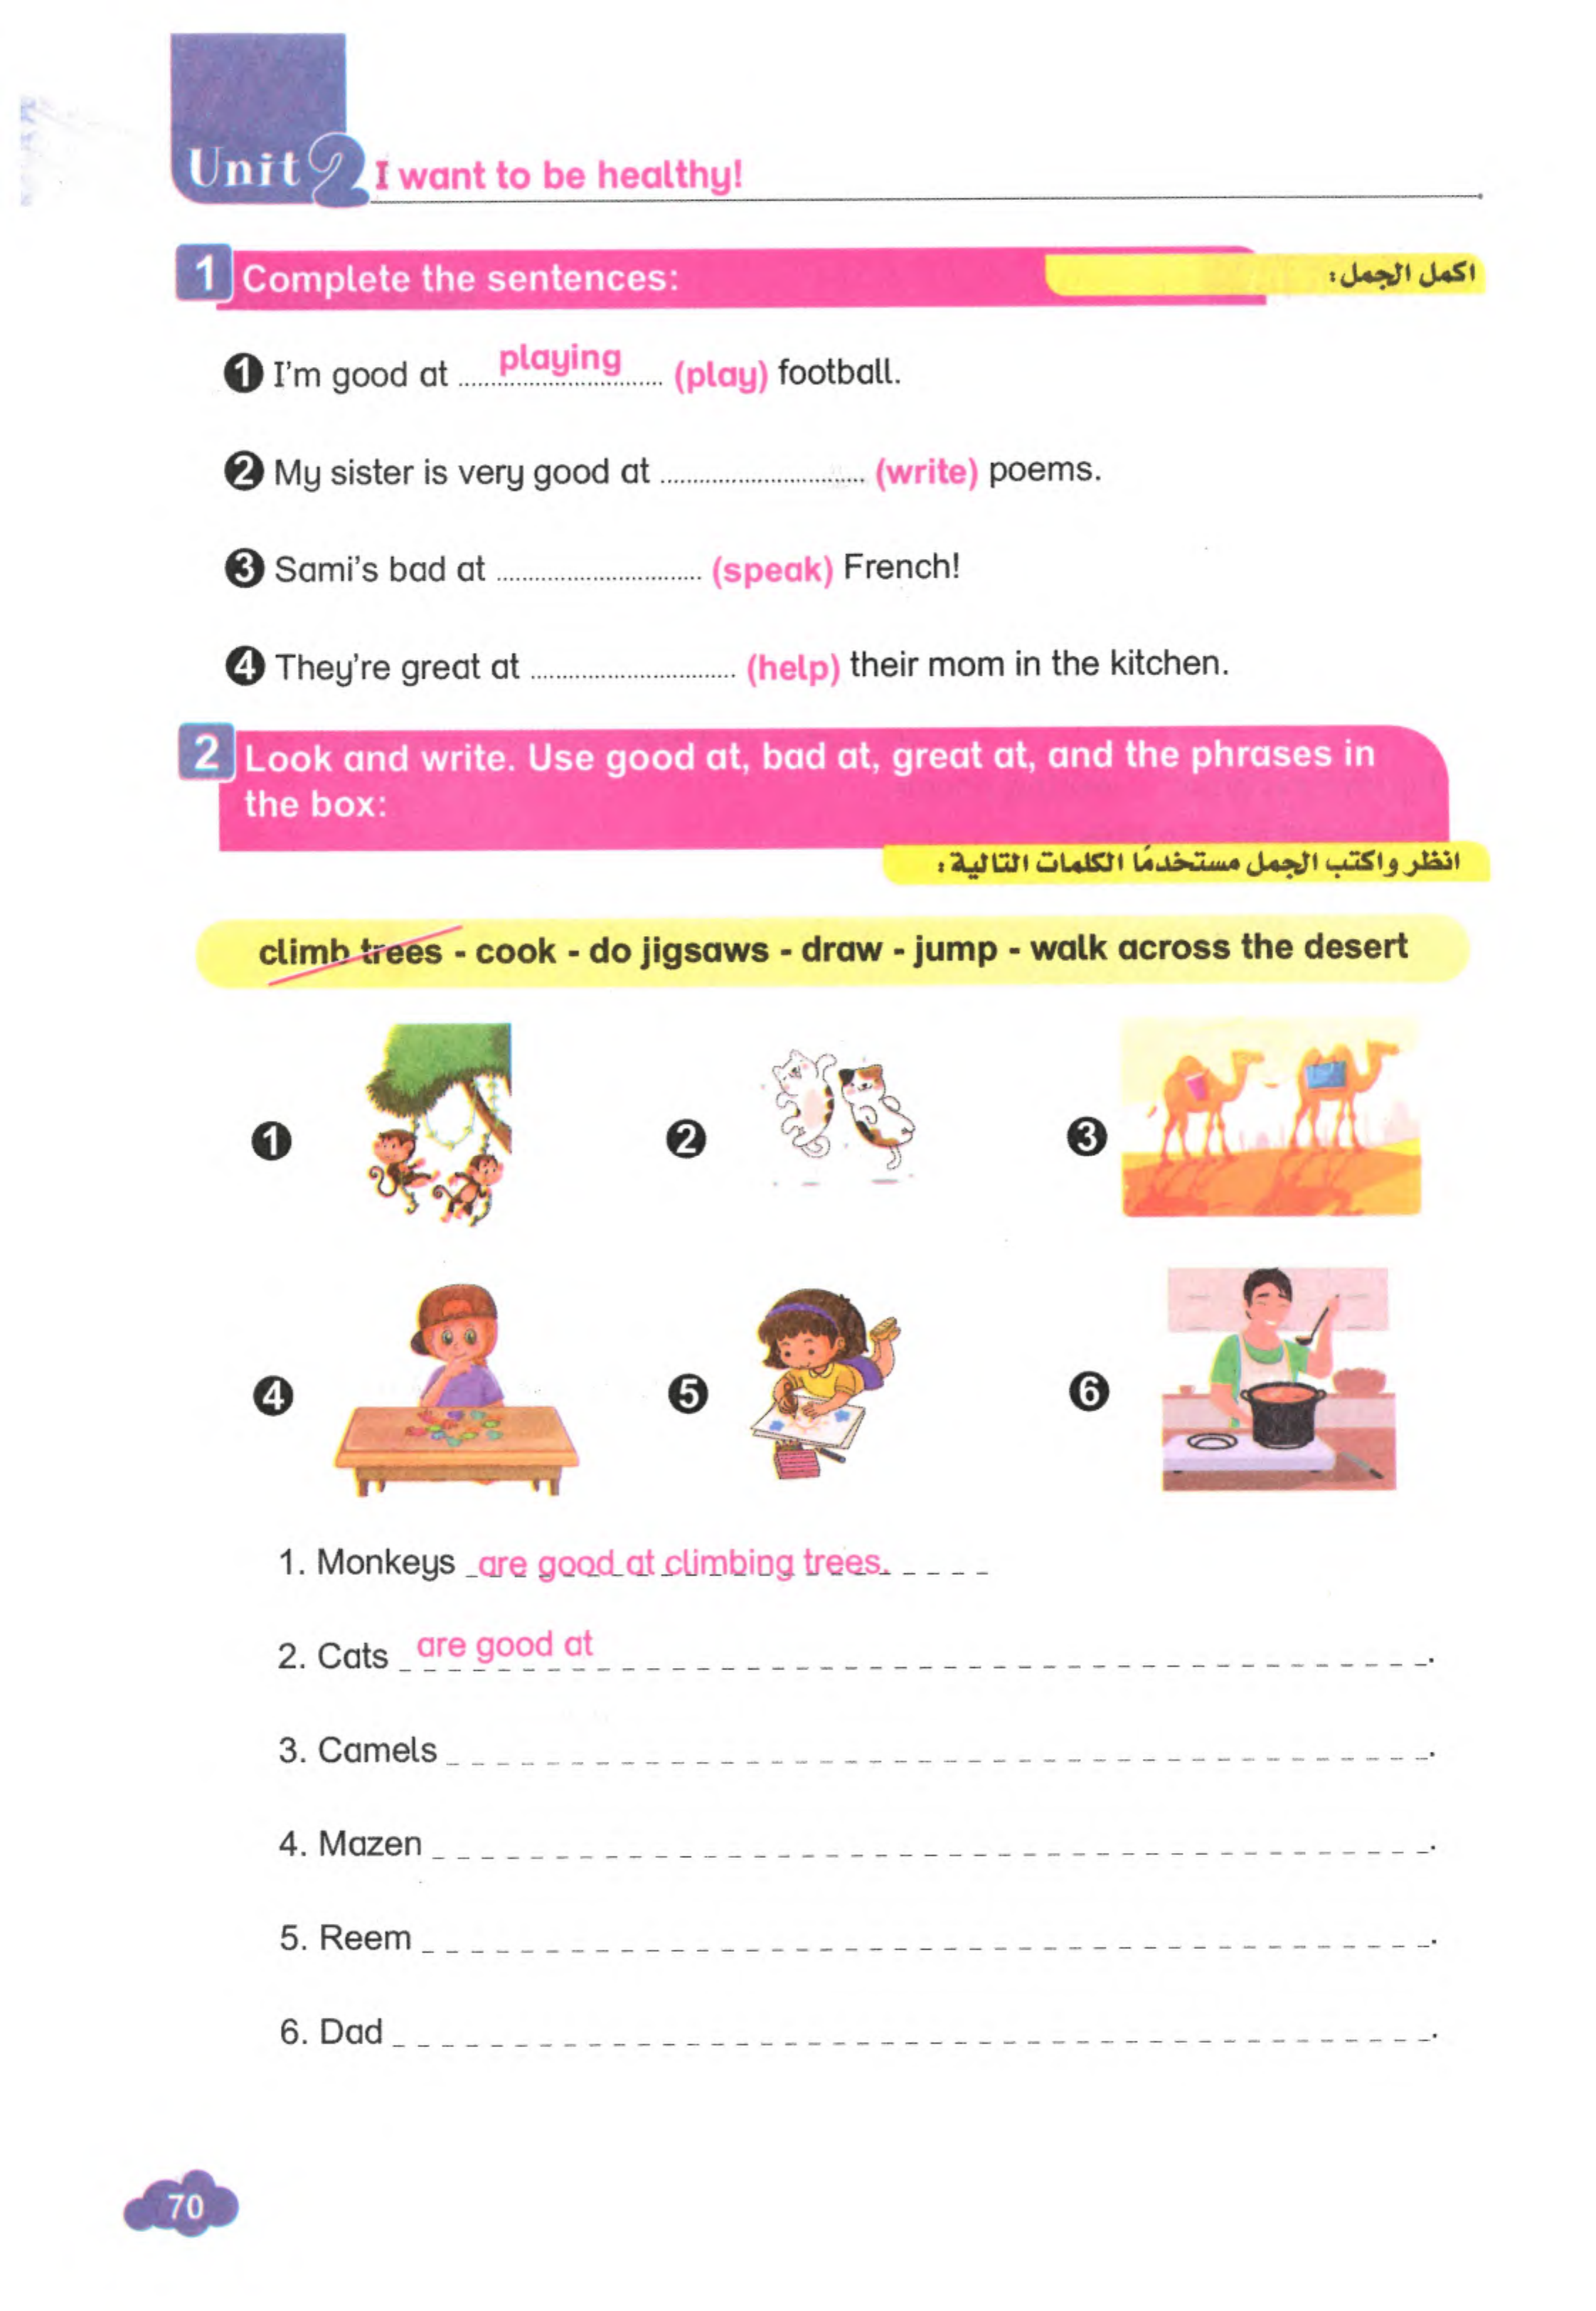 Unit 2 I want to be healthy!
1 Complete the sentences:
اكمل الجمل:
1 I'm good at playing (play) football.
2 My sister is very good at (write) poems.
3 Sami's bad at (speak) French!
4 They're great at (help) their mom in the kitchen.
2 Look and write. Use good at, bad at, great at, and the phrases in
the box:
انظر واكتب الجمل مستخدمًا الكلمات التالية:
climb trees - cook - do jigsaws - draw - jump - walk across the desert
1 2 3
4 5 6
1. Monkeys are good at climbing trees.
2. Cats are good at .
3. Camels .
4. Mazen .
5. Reem .
6. Dad .
70